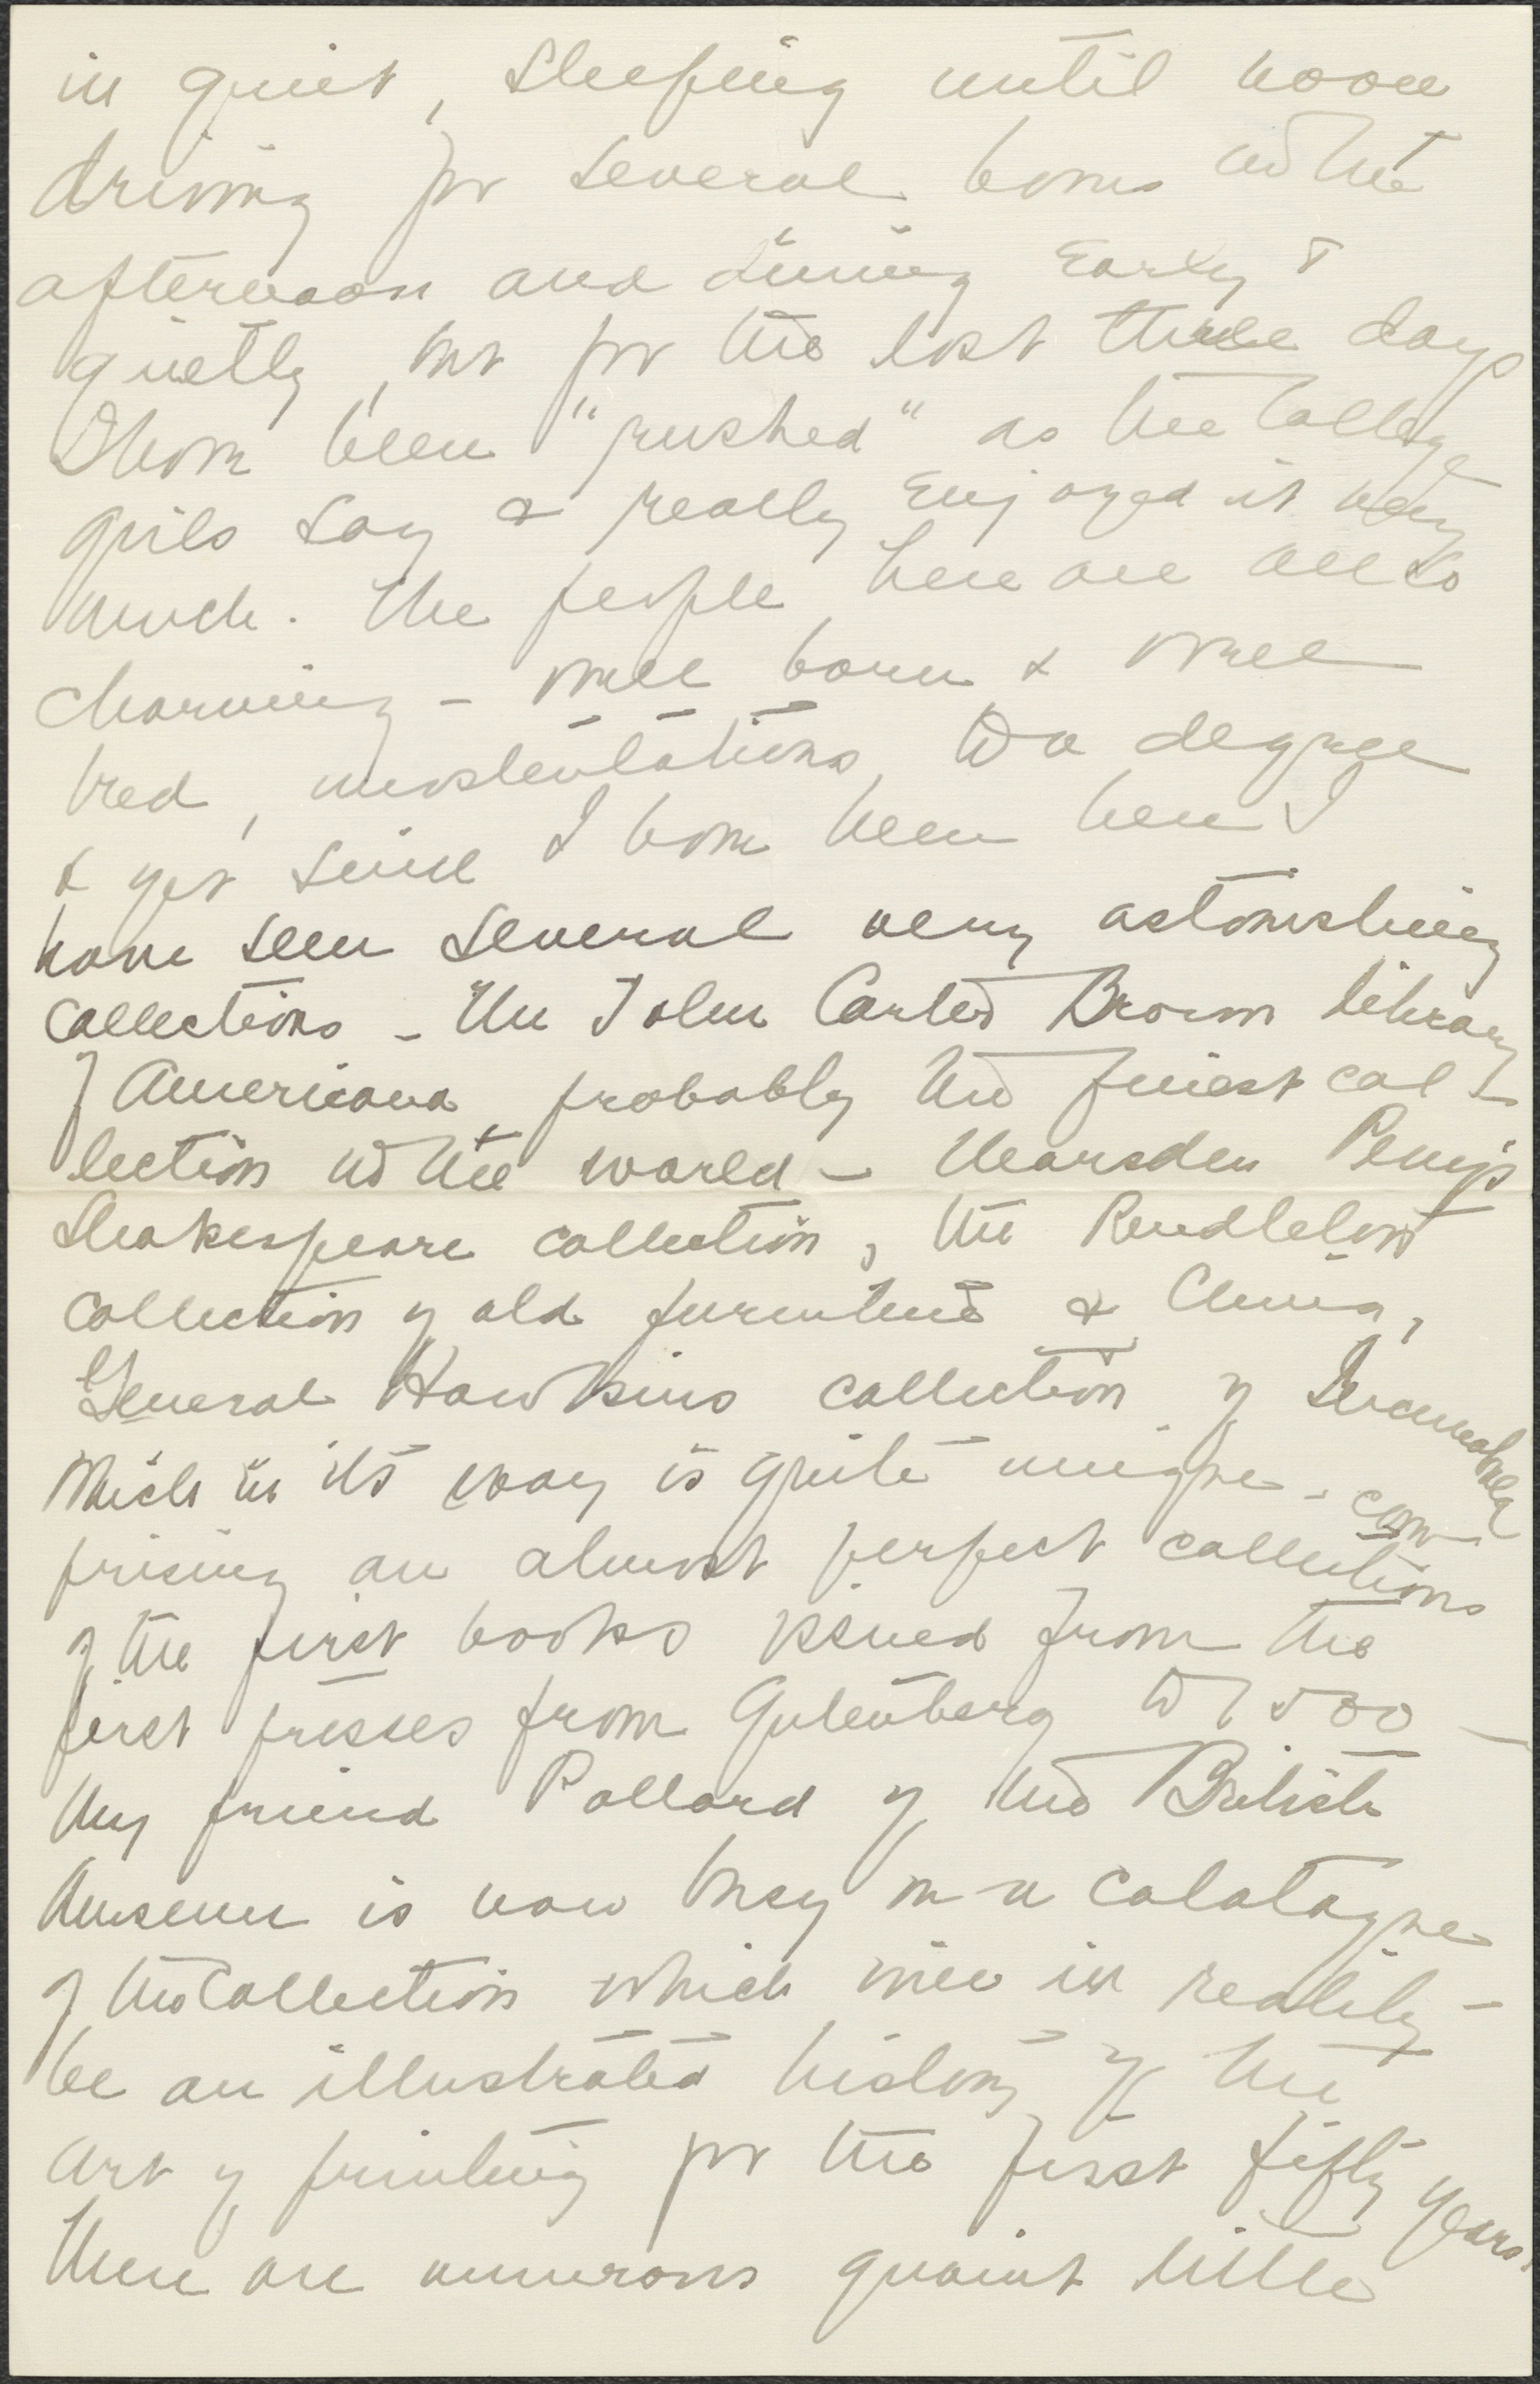 in quiet, sleeping until noon
driving for several hours in the
afternoon and dining early &
quietly, but for the last three days
I have been "rushed" as the college
girls say & really enjoyed it very
much. The people here are all so
charming - well born & well
bred, unostentatious to a degree
& yet since I have been here I
have seen several very astonishing
collections - The John Carter Brown library
of Americana probably the finest col-
lection in the world - Marsden Perry's
Shakespeare collection, the Pendleton
collection of old furniture & China,
General Hawkins collection of Incunabula
which in its way is quite unique - com-
prising an almost perfect collections
of the first books issued from the
first presses from Gutenberg to 1500 -
My friend Pollard of the British
Museum is now busy on a catalogue
of the collection which will in reality -
be an illustrated history of the
art of printing for the first fifty years.
There are numerous quaint little